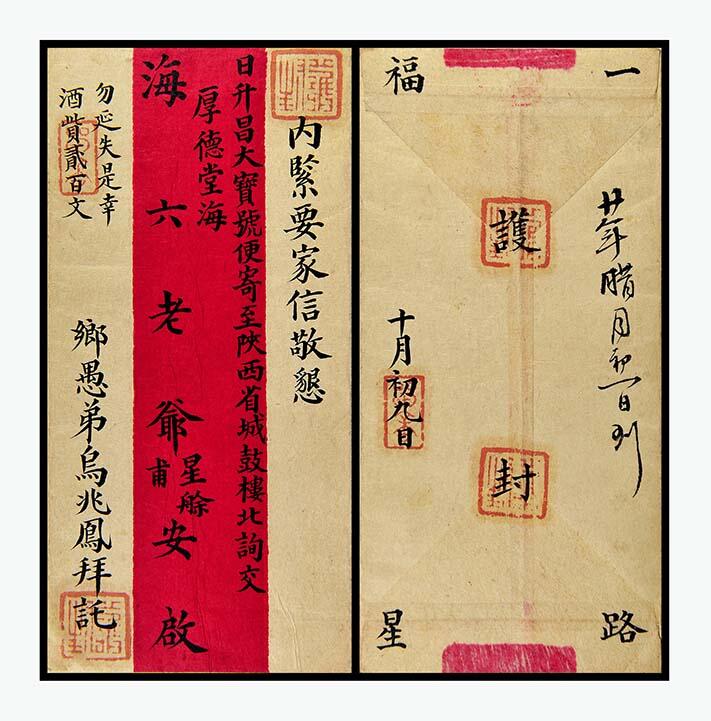 內緊要家信敬懇
日升昌大寶號便寄至陝西省城鼓樓北詢交
厚德堂海
海六老爺星艅甫安啟
勿延失是幸
酒貲貳百文
鄉愚弟烏兆鳳拜託
一路福星
廿年腊月初一日到
護封
十月初九日